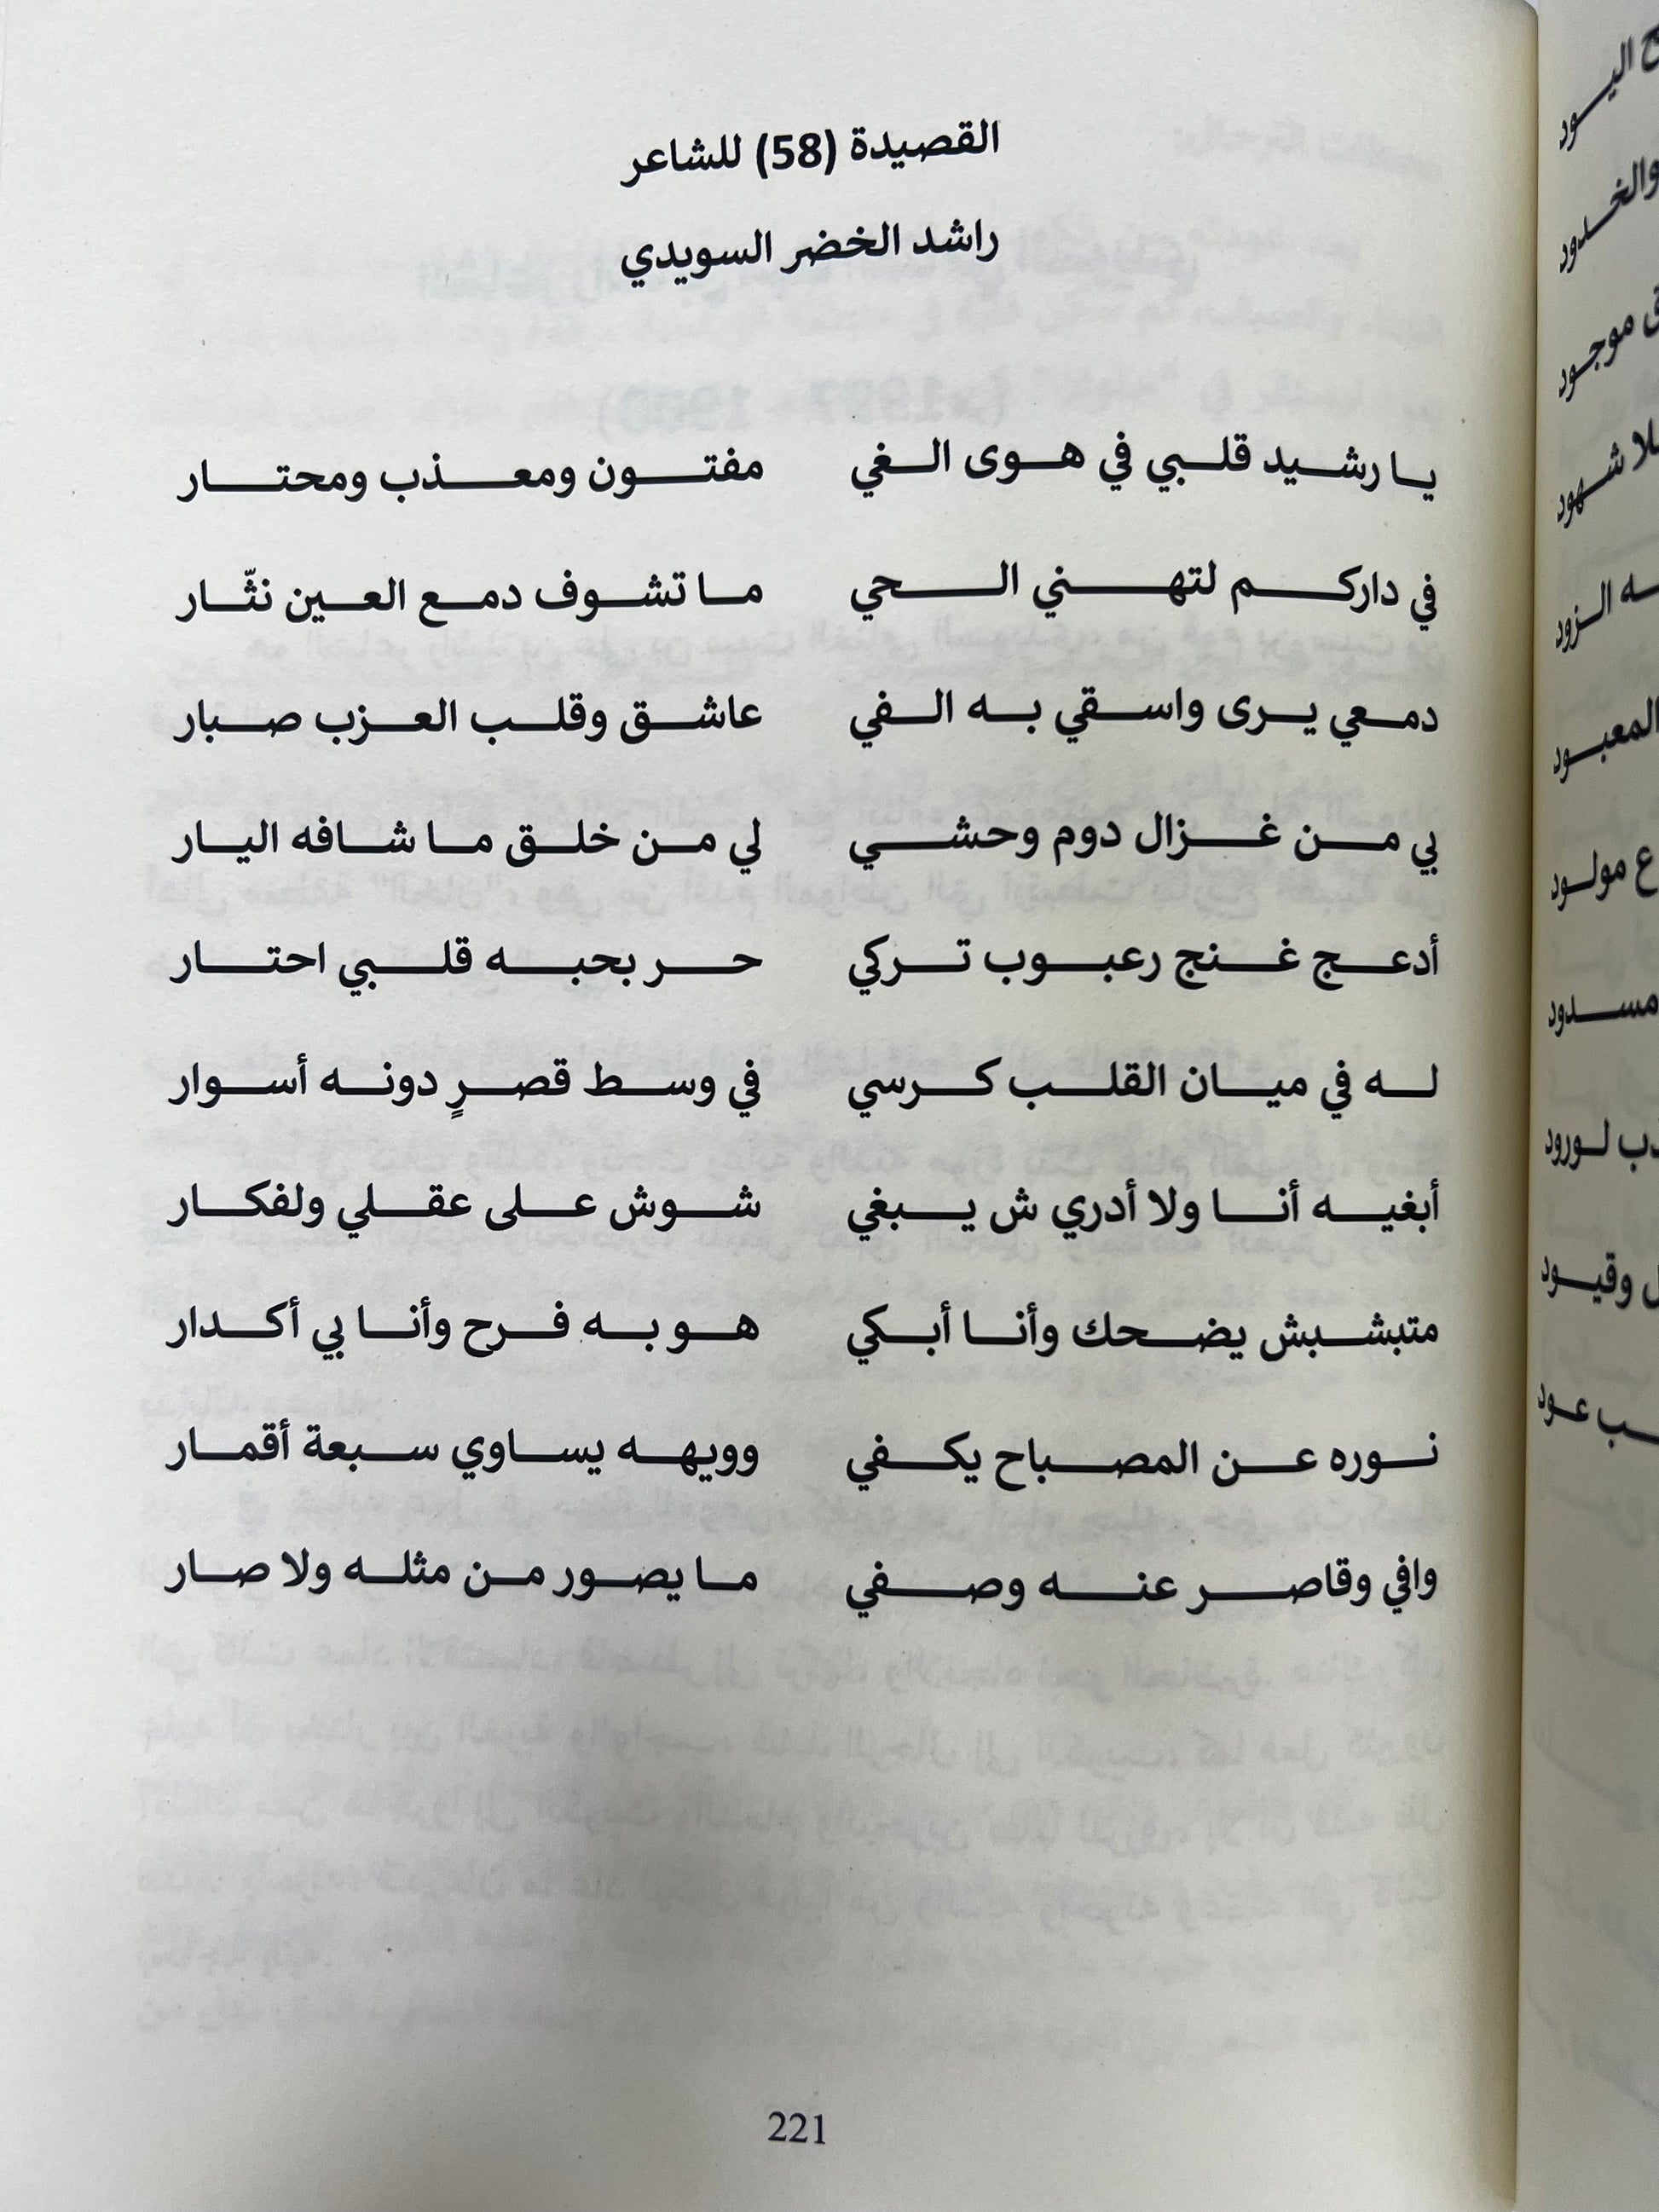 القصيدة (58) للشاعر
راشد الخضر السويدي
يا رشيد قلبي في هوى الغي مفتون ومعذب ومحتار
في داركم لتهني الحي ما تشوف دمع العين نثّار
دمعي يرى واسقي به الفي عاشق وقلب العزب صبار
بي من غزال دوم وحشي لي من خلق ما شافه اليار
أدعج غنج رعبوب تركي حر بحبه قلبي احتار
له في ميان القلب كرسي في وسط قصرٍ دونه أسوار
أبغيه أنا ولا أدري ش يبغي شوش على عقلي ولفكار
متبشبش يضحك وأنا أبكي هو به فرح وأنا بي أكدار
نوره عن المصباح يكفي وويهه يساوي سبعة أقمار
وافي وقاصر عنه وصفي ما يصور من مثله ولا صار
221
والخدود
موجود
شهود
الزود
المعبود
مولود
مسدود
لورود
وقيود
عود